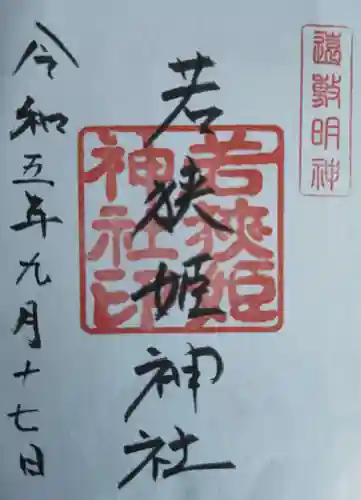 遠敷明神
若狭姫神社
若狭姫神社印
令和五年九月十七日